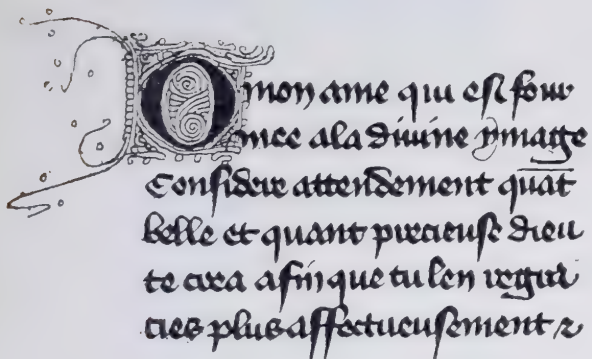 O mon ame qui est four
mee ala diuine ymage
Considere attendement quāt
belle et quant precieuse dieu
te crea afin que tu len regra
cies plus affectueusement ⁊